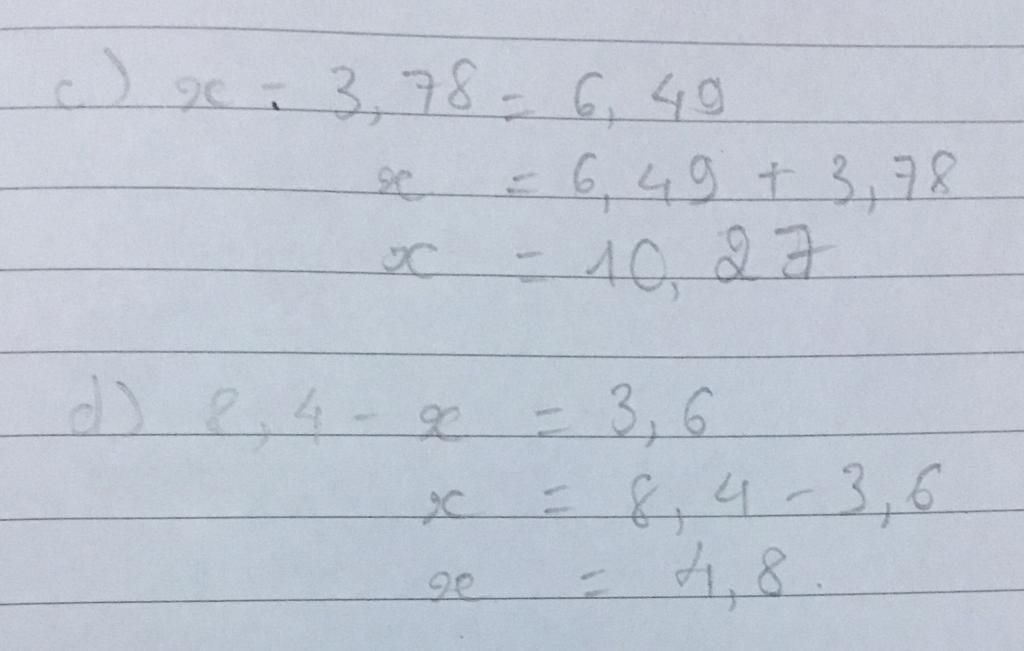 c) x - 3,78 = 6,49
x = 6,49 + 3,78
x = 10,27
d) 8,4 - x = 3,6
x = 8,4 - 3,6
x = 4,8.